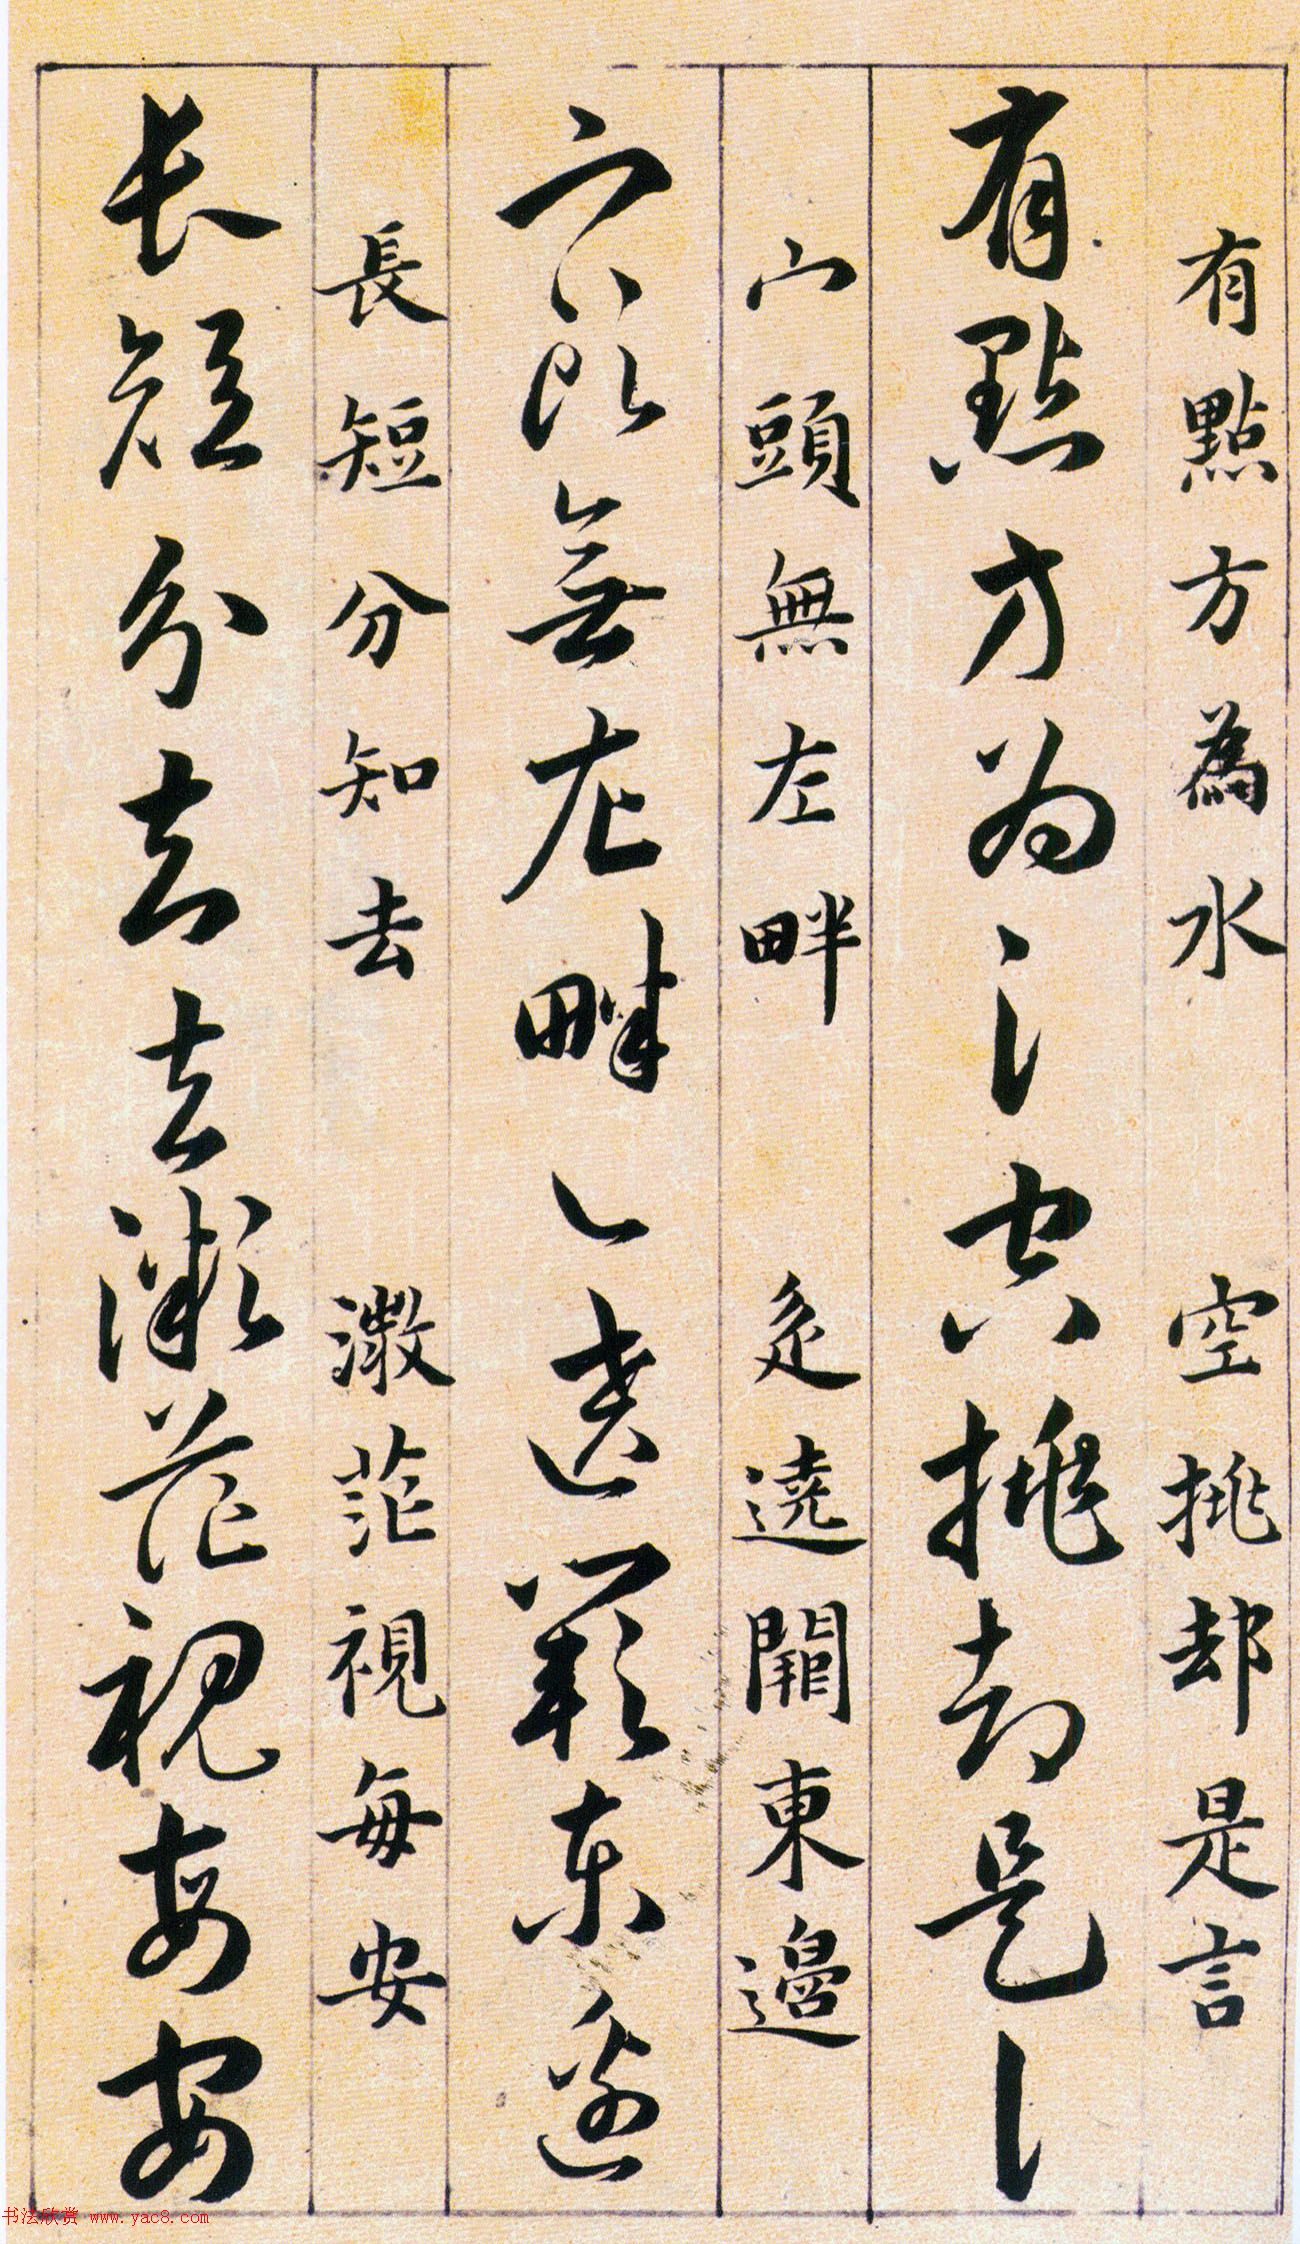 有點方為水 空挑却是言
有點方為氵空挑却是讠
宀頭無左畔 辵遶闕東邊
宀頭無左畔辶遶闕東邊
長短分知去 溦茫視每安
長短分知去溦茫視每安
书法欣赏 www.yac8.com